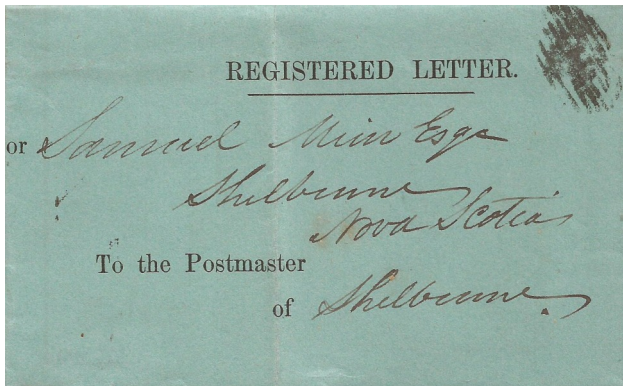 REGISTERED LETTER.
or Samuel Muir Esqr
Shelburne
Nova Scotia
To the Postmaster
of Shelburne.